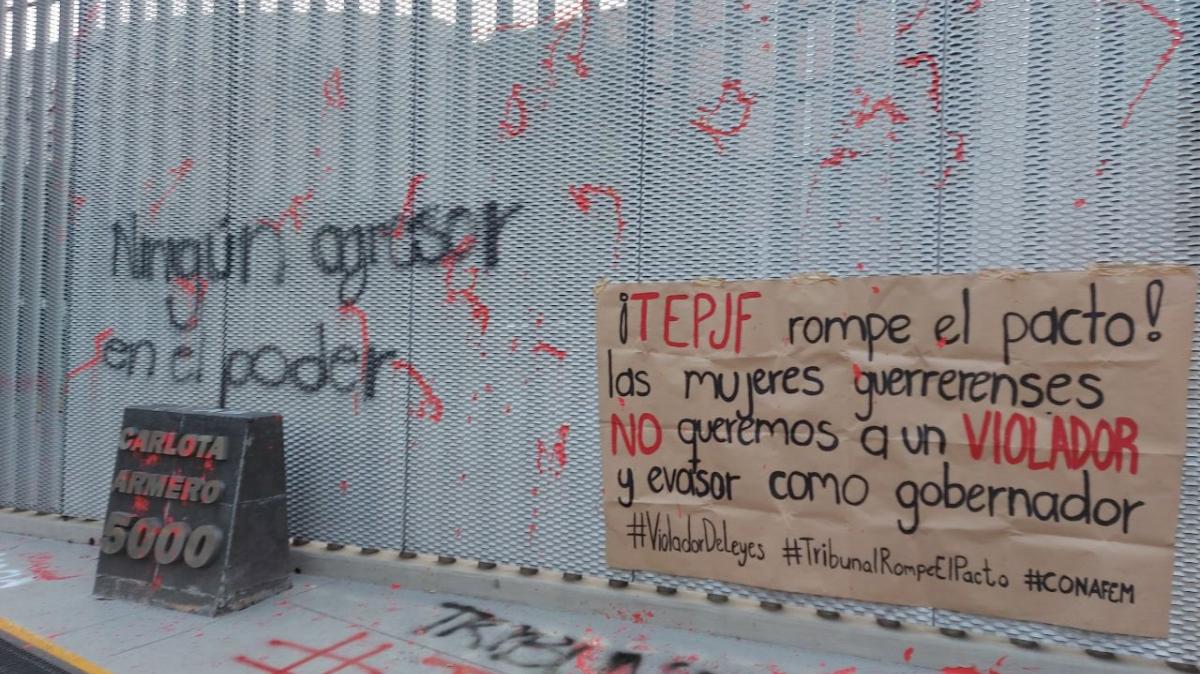 Ningún agresor
en el poder
CARLOTA
ARMERO
5000
¡TEPJF rompe el pacto!
las mujeres guerrerenses
NO queremos a un VIOLADOR
y evasor como gobernador
#VioladorDeLeyes #TribunalRompeElPacto #CONAFEM